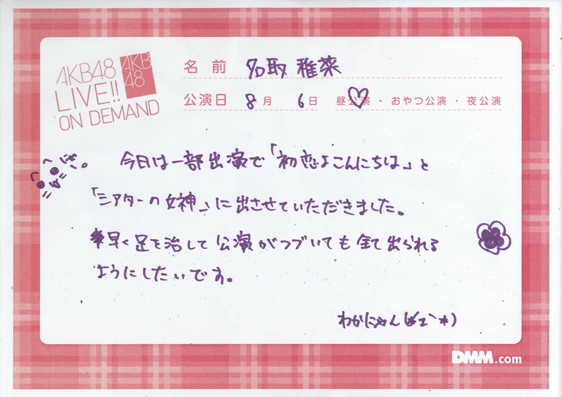 AKB48
LIVE!!
ON DEMAND
AKB
48
名前 名取 稚菜
公演日 8月 6日 昼公演・おやつ公演・夜公演
今日は一部出演で「初恋よこんにちは」と
「シアターの女神」に出させていただきました。
早く足を治して公演がつづいても全て出られる
ようにしたいです。
わかにゃん
DMM.com